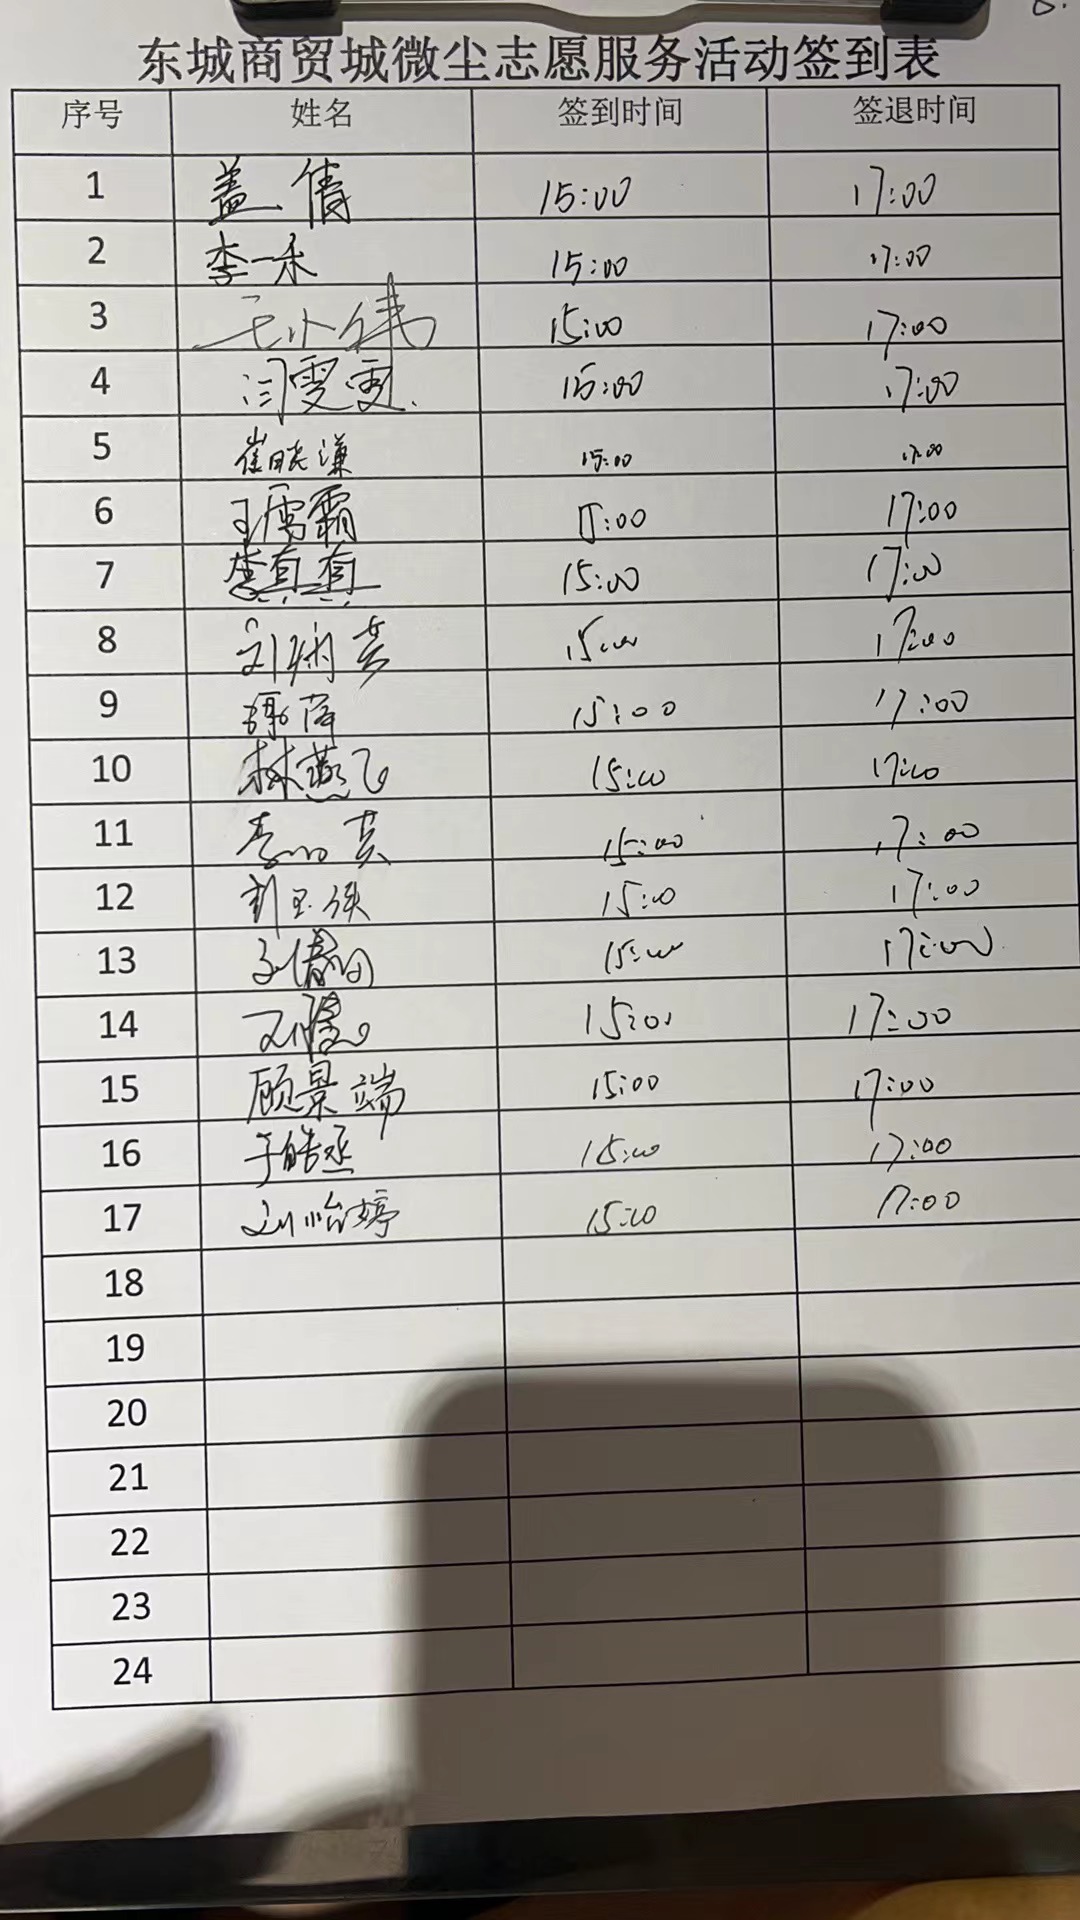 东城商贸城微尘志愿服务活动签到表
序号 姓名 签到时间 签退时间
1 盖倩 15:00 17:00
2 李一禾 15:00 17:00
3 王小伟 15:00 17:00
4 闫雯雯 15:00 17:00
5 崔晓谦 15:00 17:00
6 王雪霜 15:00 17:00
7 李真真 15:00 17:00
8 15:00 17:00
9 15:00 17:00
10 林燕飞 15:00 17:00
11 15:00 17:00
12 15:00 17:00
13 15:00 17:00
14 15:00 17:00
15 顾景端 15:00 17:00
16 于皓丞 15:00 17:00
17 刘怡婷 15:00 17:00
18
19
20
21
22
23
24